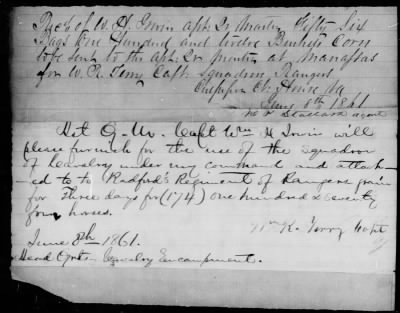 Rec'd of W. H. Irwin Asst. Qr Master Fifty Six
Bags One Hundred and twelve Bushels Corn
to be sent to the Asst. Qr Master at Manassas
for W. R. Terry Capt. Squadron Rangers
Culpeper Ct. House Va
June 8th 1861
agent
Act Q. M. Capt Wm H Irwin will
please furnish for the use of the squadron
of Cavalry under my command and attach-
ed to to Radford's Regiment of Rangers grain
for Three days for (174) one hundred & seventy
four horses.
Wm R. Terry Capt
June 8th 1861.
Head Qrts Cavalry Encampment.